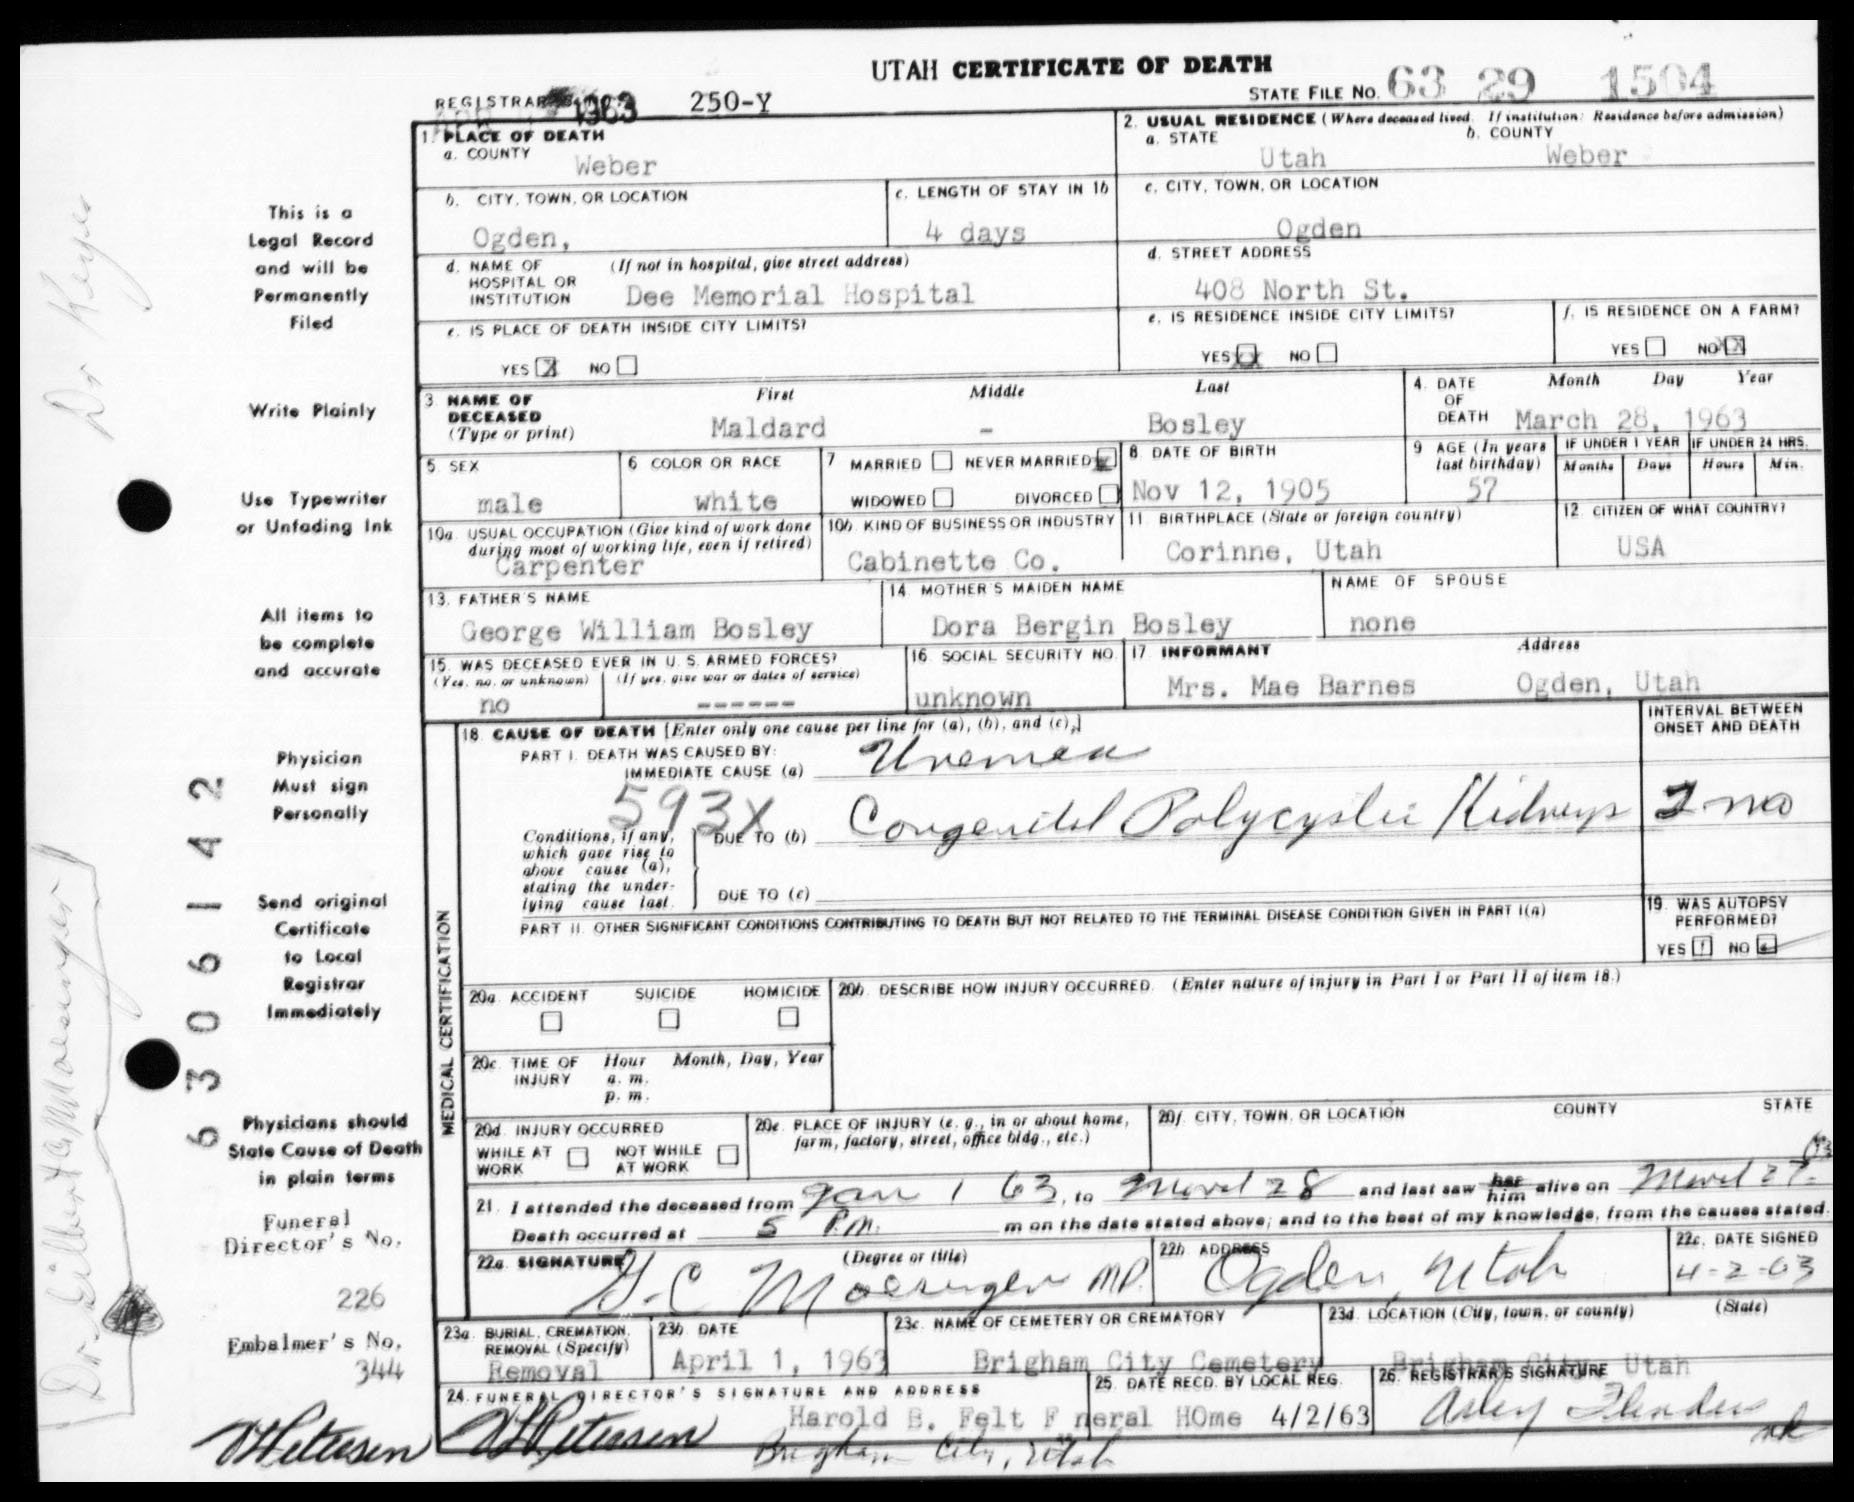 UTAH CERTIFICATE OF DEATH
STATE FILE NO. 63 29 1504
REGISTRAR'S 1963 250-Y
1. PLACE OF DEATH
a. COUNTY
Weber
2. USUAL RESIDENCE (Where deceased lived. If institution: Residence before admission)
a. STATE b. COUNTY
Utah Weber
b. CITY, TOWN, OR LOCATION
Ogden,
c. LENGTH OF STAY IN 1b
4 days
c. CITY, TOWN, OR LOCATION
Ogden
d. NAME OF HOSPITAL OR INSTITUTION (If not in hospital, give street address)
Dee Memorial Hospital
d. STREET ADDRESS
408 North St.
e. IS PLACE OF DEATH INSIDE CITY LIMITS?
YES X NO
e. IS RESIDENCE INSIDE CITY LIMITS?
YES XX NO
f. IS RESIDENCE ON A FARM?
YES NO XX
3. NAME OF DECEASED (Type or print)
First Middle Last
Maldard - Bosley
4. DATE OF DEATH
Month Day Year
March 28, 1963
5. SEX
male
6 COLOR OR RACE
white
7 MARRIED NEVER MARRIED X
WIDOWED DIVORCED
8. DATE OF BIRTH
Nov 12, 1905
9 AGE (In years last birthday)
57
IF UNDER 1 YEAR IF UNDER 24 HRS.
Months Days Hours Min.
10a. USUAL OCCUPATION (Give kind of work done during most of working life, even if retired)
Carpenter
10b. KIND OF BUSINESS OR INDUSTRY
Cabinette Co.
11. BIRTHPLACE (State or foreign country)
Corinne, Utah
12. CITIZEN OF WHAT COUNTRY?
USA
13. FATHER'S NAME
George William Bosley
14 MOTHER'S MAIDEN NAME
Dora Bergin Bosley
NAME OF SPOUSE
none
15. WAS DECEASED EVER IN U. S. ARMED FORCES?
(Yes, no, or unknown) (If yes, give war or dates of service)
no ------
16. SOCIAL SECURITY NO.
unknown
17. INFORMANT Address
Mrs. Mae Barnes Ogden, Utah
MEDICAL CERTIFICATION
18. CAUSE OF DEATH [Enter only one cause per line for (a), (b), and (c).]
PART I. DEATH WAS CAUSED BY:
IMMEDIATE CAUSE (a) Uremea
INTERVAL BETWEEN ONSET AND DEATH
593X
Conditions, if any, which gave rise to above cause (a), stating the underlying cause last.
DUE TO (b) Congenital Polycystic Kidneys 2 mo
DUE TO (c)
PART II. OTHER SIGNIFICANT CONDITIONS CONTRIBUTING TO DEATH BUT NOT RELATED TO THE TERMINAL DISEASE CONDITION GIVEN IN PART I(a)
19. WAS AUTOPSY PERFORMED?
YES NO
20a. ACCIDENT SUICIDE HOMICIDE
20b. DESCRIBE HOW INJURY OCCURRED. (Enter nature of injury in Part I or Part II of item 18.)
20c. TIME OF INJURY Hour Month, Day, Year
a. m.
p. m.
20d. INJURY OCCURRED
WHILE AT WORK NOT WHILE AT WORK
20e. PLACE OF INJURY (e. g., in or about home, farm, factory, street, office bldg., etc.)
20f. CITY, TOWN, OR LOCATION COUNTY STATE
21. I attended the deceased from Jan 1 63, to March 28 and last saw her him alive on March 27. 63
Death occurred at 5 P.M. m on the date stated above; and to the best of my knowledge, from the causes stated.
22a. SIGNATURE (Degree or title)
G. C. Moesinger MD.
22b. ADDRESS
Ogden, Utah
22c. DATE SIGNED
4-2-63
23a. BURIAL, CREMATION, REMOVAL (Specify)
Removal
23b. DATE
April 1, 1963
23c. NAME OF CEMETERY OR CREMATORY
Brigham City Cemetery
23d. LOCATION (City, town, or county) (State)
Brigham City, Utah
24. FUNERAL DIRECTOR'S SIGNATURE AND ADDRESS
Petersen Harold B. Felt F neral HOme
Brigham City, Utah
25. DATE RECD. BY LOCAL REG.
4/2/63
26. REGISTRAR'S SIGNATURE
This is a
Legal Record
and will be
Permanently
Filed
Write Plainly
Use Typewriter
or Unfading Ink
All items to
be complete
and accurate
Physician
Must sign
Personally
Send original
Certificate
to Local
Registrar
Immediately
Physicians should
State Cause of Death
in plain terms
Funeral
Director's No.
226
Embalmer's No.
344
Petersen
6 3 0 6 1 4 2
Dr Keyes
Dr. Gilbert Moesinger